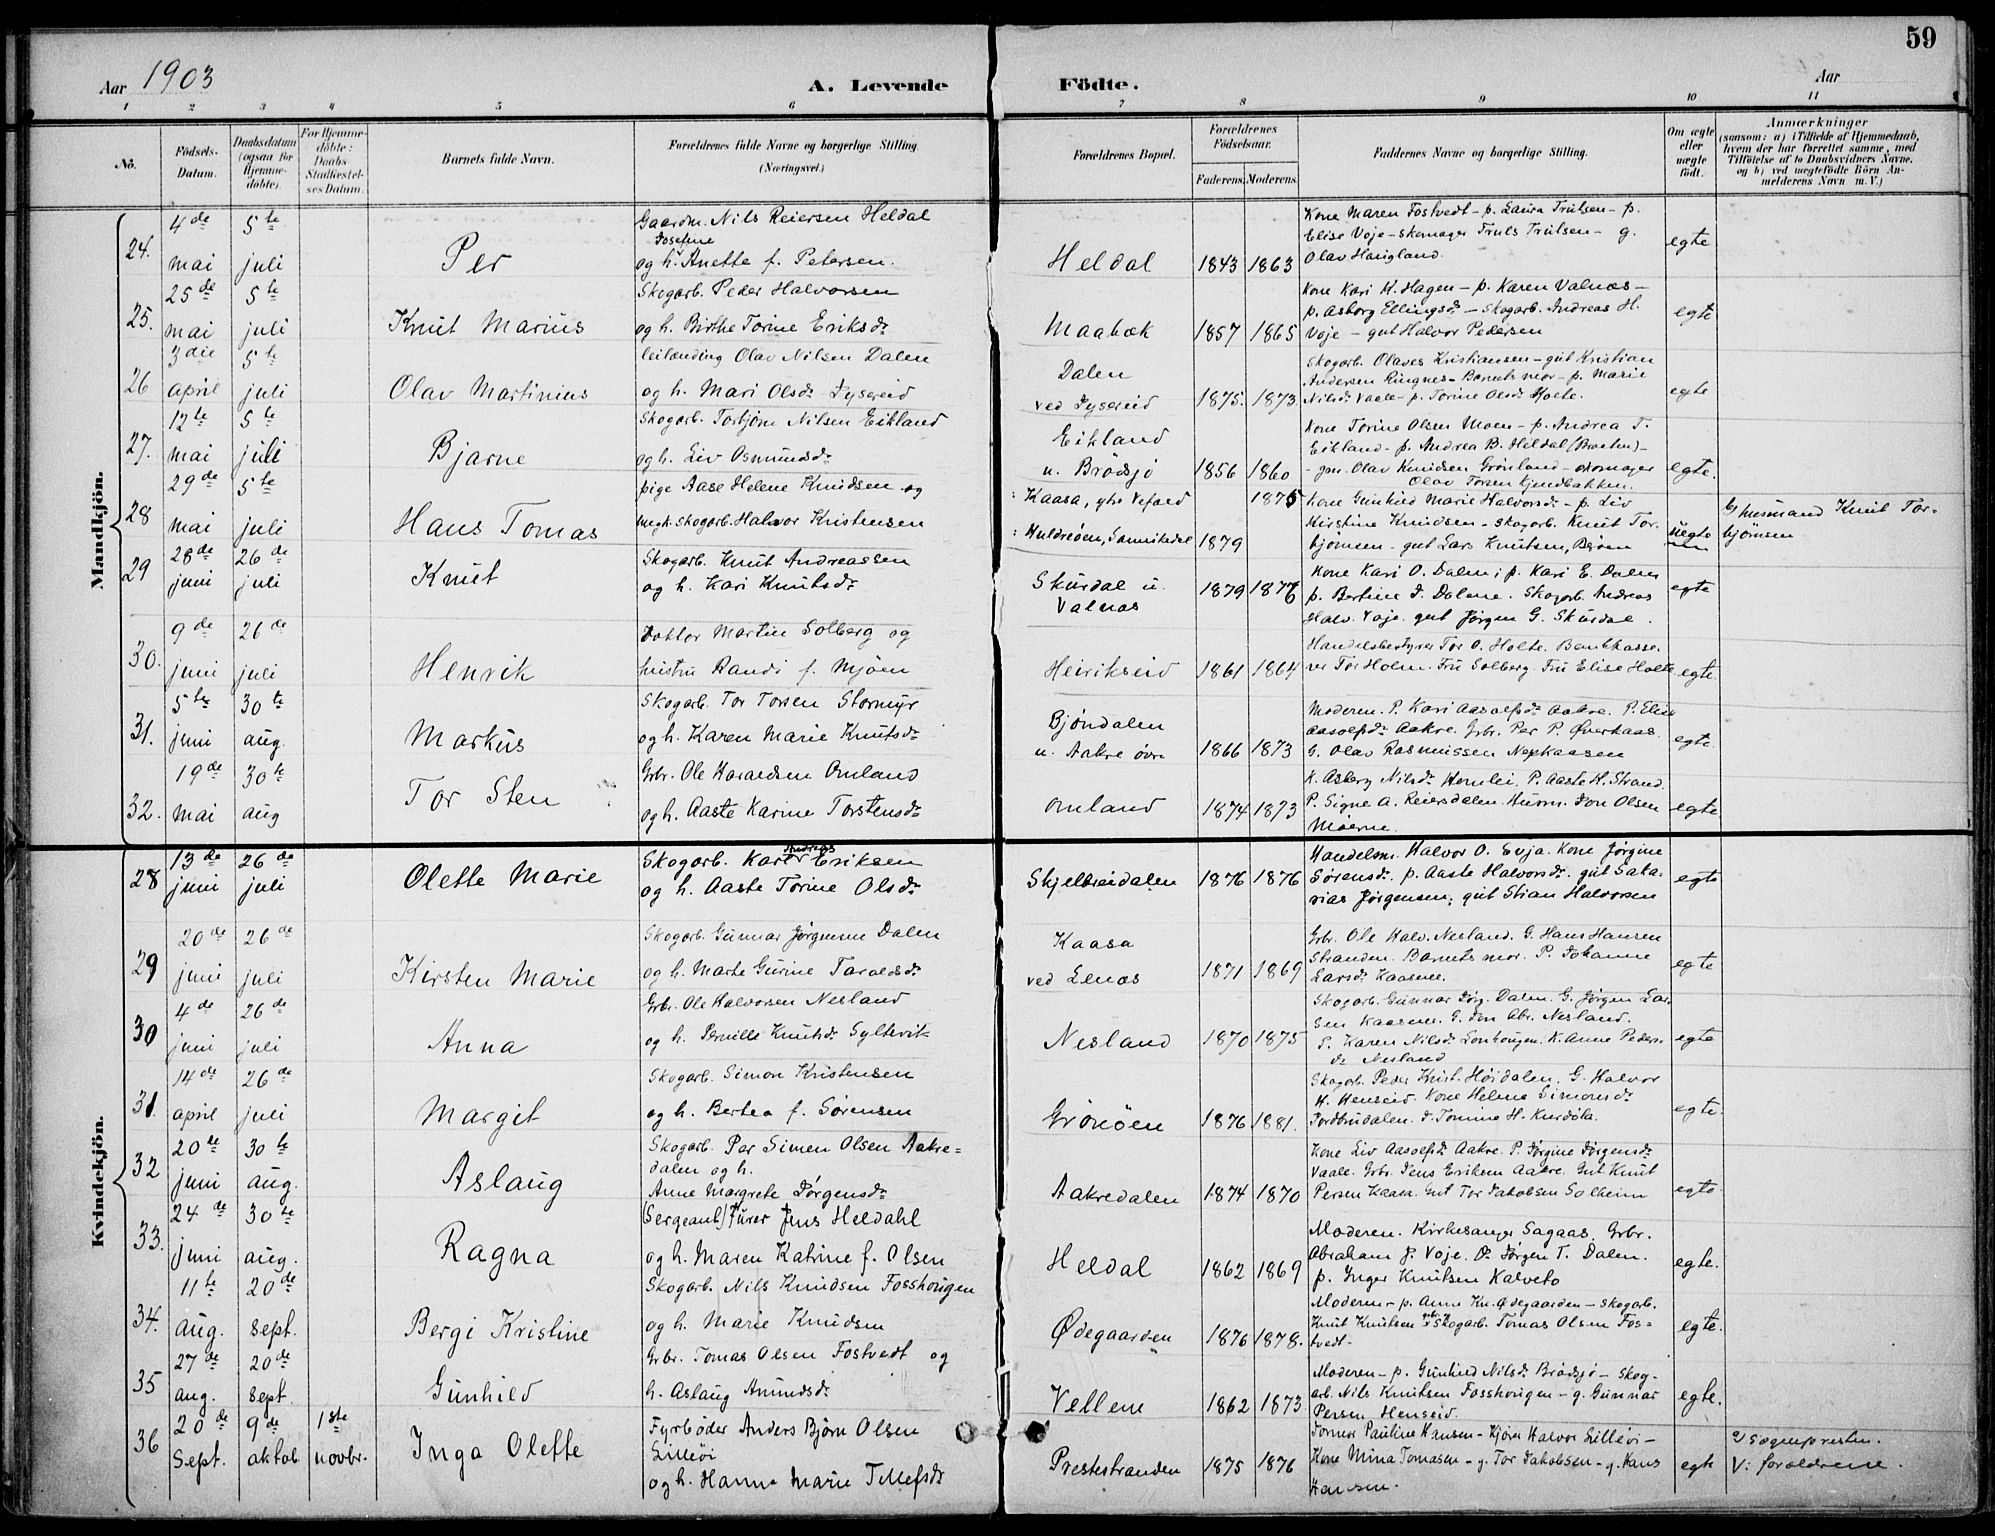 59
Aar 1903
A. Levende Födte.
Aar
1 2 3 4 5 6 7 8 9 10 11
No.
Födsels-
Datum.
Daabsdatum
(ogsaa for
Hjemme-
döbte).
For Hjemme-
döbte:
Daabs-
Stadfæstel-
ses Datum.
Barnets fulde Navn.
Forældrenes fulde Navne og borgerlige Stilling.
(Næringsvei.)
Forældrenes Bopæl.
Forældrenes
Födselsaar.
Faderens. Moderens.
Faddernes Navne og borgerlige Stilling.
Om ægte
eller
uægte
födt.
Anmærkninger
(saasom: a) i Tilfælde af Hjemmedaab,
hvem der har forrettet samme, med
Tilföielse af to Daabsvidners Navne,
og b) ved uægtefödte Börn An-
melderens Navn m. V.)
Mandkjön.
24. 4de mai 5te juli
Per
Gaardm. Nils Reiersen Heldal
Josefine
og h. Anette f. Petersen.
Heldal 1843 1863
Kone Maren Fostvedt - p. Laura Trulsen - p.
Elise Voje - skomager Truls Trulsen - g.
Olav Haugland.
egte
25. 25de mai 5te juli
Knut Marius
Skogarb. Peder Halvorsen
og h. Birthe Torine Eriksdr
Maabæk 1857 1865
Kone Kari H. Hagen - p. Karen Valnæs -
p. Asborg Ellingsdr - Skogarb. Andreas H.
Voje - gut Halvor Pedersen
egte
26 3die april 5te juli
Olav Martinius
leilænding Olav Nilsen Dalen
og h. Mari Olsdr Dysereid
Dalen
ved Dysereid 1875. 1873
Skogarb. Olaves Kristiansen - gut Kristian
Andersen Ringnes - Barnets mor - p. Marie
Nilsdr Vaale - p. Torine Olsdr Holte.
egte
27. 12te mai 5te juli
Bjarne
Skogarb. Torbjørn Nilsen Eikland
og h. Liv Osmundsdr
Eikland
u. Brødsjø 1856 1860
Kone Torine Olsen Moen - p. Andrea T.
Eikland - p. Andrea B. Heldal (Braaten) -
- gm. Olav Knudsen Grønland - skomager
Olav Torsen Kjendbakken.
egte.
28 29de mai 5te juli
Hans Tomas
pige Aase Helene Knudsen og
ungk. skogarb. Halvor Kristensen
: Kaasa, 1875
: Huldreøen, Sannikedal 1879
Kone Gunhild Marie Halvorsdr - p. Liv
Kirstine Knudsen - skogarb. Knut Tor-
bjørnsen - gut Lars Knutsen,
uegte
b) husmand Knut Tor-
bjørnsen
29 28de juni 26de juli
Knut
Skogarb. Knut Andreassen
og h. Kari Knutsdr
Skurdal u.
Valnæs 1879 1876
Kone Kari O. Dalen; p. Kari E. Dalen
p. Bertine J. Dalene. Skogarb. Andreas
Halv. Voje. gut Jørgen G. Skurdal.
egte
30. 9de juni 26de juli
Henrik
Doktor Martin Solberg og
hustru Randi f. Mjøen
Heirikseid 1861 1864
Handelsbestyrer Tor O. Holte. Bankkasse-
rer Tor Holm. Fru Solberg. Fru Elise Holte
egte.
31. 5te juni 30te aug.
Markus
Skogarb. Tor Torsen Stormyr
og h. Karen Marie Knutsdr
Bjøndalen
u. Aakre øvre 1866 1873
Moderen. P. Kari Aasolfsdr Aakre. P. Elise
Aasolfsdr Aakre. Grb. Per P. Øverkaas.
G. Olav Rasmussen Nepkaasen
egte.
32. 19de mai 30te aug
Tor Sten
Grbr. Ole Haraldsen Omland
og h. Aaste Karine Torstensdr
Omland 1874 1873
K. Asberg Nilsdr Homlei. P. Aaste H. Strand.
P. Signe A. Reiersdalen. Husm. Jon Olsen
Moerne.
egte
Kvindekjön.
28 13de juni 26de juli
Olette Marie
Andreas
Skogarb. Karl Eriksen
og h. Aaste Torine Olsdr
Skjelbreidalen 1876 1876
Handelsm. Halvor O. Evja. Kone Jørgine
Sørensdr. p. Aaste Halvorsdr. gut Saka-
rias Jørgensen; gut Stian Halvorsen
egte
29 20de juni 26de juli
Kirsten Marie
Skogarb. Gunnar Jørgensen Dalen
og h. Marte Gurine Taraldsdr
Kaasa
ved Lenæs 1871 1869
Grbr. Ole Halv. Nesland. G. Hans Hansen
Stranden. Barnets mor. P. Johanne
Larsdr Kaasene.
egte
30 4de juni 26de juli
Anna
Grbr. Ole Halvorsen Nesland
og h. Pernille Knutsdr Syltevik
Nesland 1870 1875
Skogarb. Gunnar Jørg. Dalen. G. Jørgen Lar-
sen Kaasene. G. Jon Abr. Nesland.
P. Karen Nilsdr Lonhougen. K. Anne Peders-
dr Nesland
egte
31. 14de april 26de juli
Margit
Skogarb. Simon Kristensen
og h. Bertea f. Sørensen
Grønøen 1876 1881.
Skogarb. Peder Krist. Høidalen. G. Halvor
H. Henseid. Kone Helene Simonsdr
Jordbrudalen. J. Tomine H. Kurdøla.
egte.
32 20de juni 30te aug.
Aslaug
Skogarb. Per Simen Olsen Aakre-
dalen og h.
Anne Margrete Jørgensdr
Aakredalen 1874 1870
Kone Liv Aasolfsdr Aakre. P. Jørgine Jørgensdr
Vaale. Grbr. Jens Eriksen Aakre. Gut Knut
Persen Kaasa. Gut Tor Jakobsen Solheim
egte.
33. 24de juni 30te aug.
Ragna
(Sergeant) Furer Jens Heldahl
og h. Maren Katrine f. Olsen
Heldal 1862 1869
Moderen. Kirkesanger Sagaas. Grbr.
Abraham J. Voje. Do Jørgen T. Dalen.
p. Inger Knutsen Kalveto
egte.
34. 11te aug. 20de sept.
Bergi Kristine
Skogarb. Nils Knudsen Fosshougen
og h. Marie Knudsen
Ødegaarden 1876 1878.
Moderen - p. Anne Kn. Ødegaarden - skogarb.
Knut Knutsen skogarb. Tomas Olsen Fos-
tvedt -
egte.
35 27de aug. 20de sept.
Gunhild
Grbr. Tomas Olsen Fostvedt og
h. Aslaug Amundsdr
Vellene 1862 1873
Moderen - p. Gunhild Nilsdr Brødsjø - Skog-
arb. Nils Knutsen Fosshougen - g. Gunnar
Persen Henseid.
egte.
36 20de sept. 9de oktob 1ste novbr.
Inga Olette
Fyrbøder Anders Bjørn Olsen
Lilleöi
og h. Hanna Marie Tellefsdr
Prestestranden 1875 1876
Pauline Hansen - Kjører Halvor Lilleöi -
Kone Mina Tomasen - g. Tor Jakobsen - g. Hans
Hansen.
egte
a) Sognepresten.
V: forældrene.